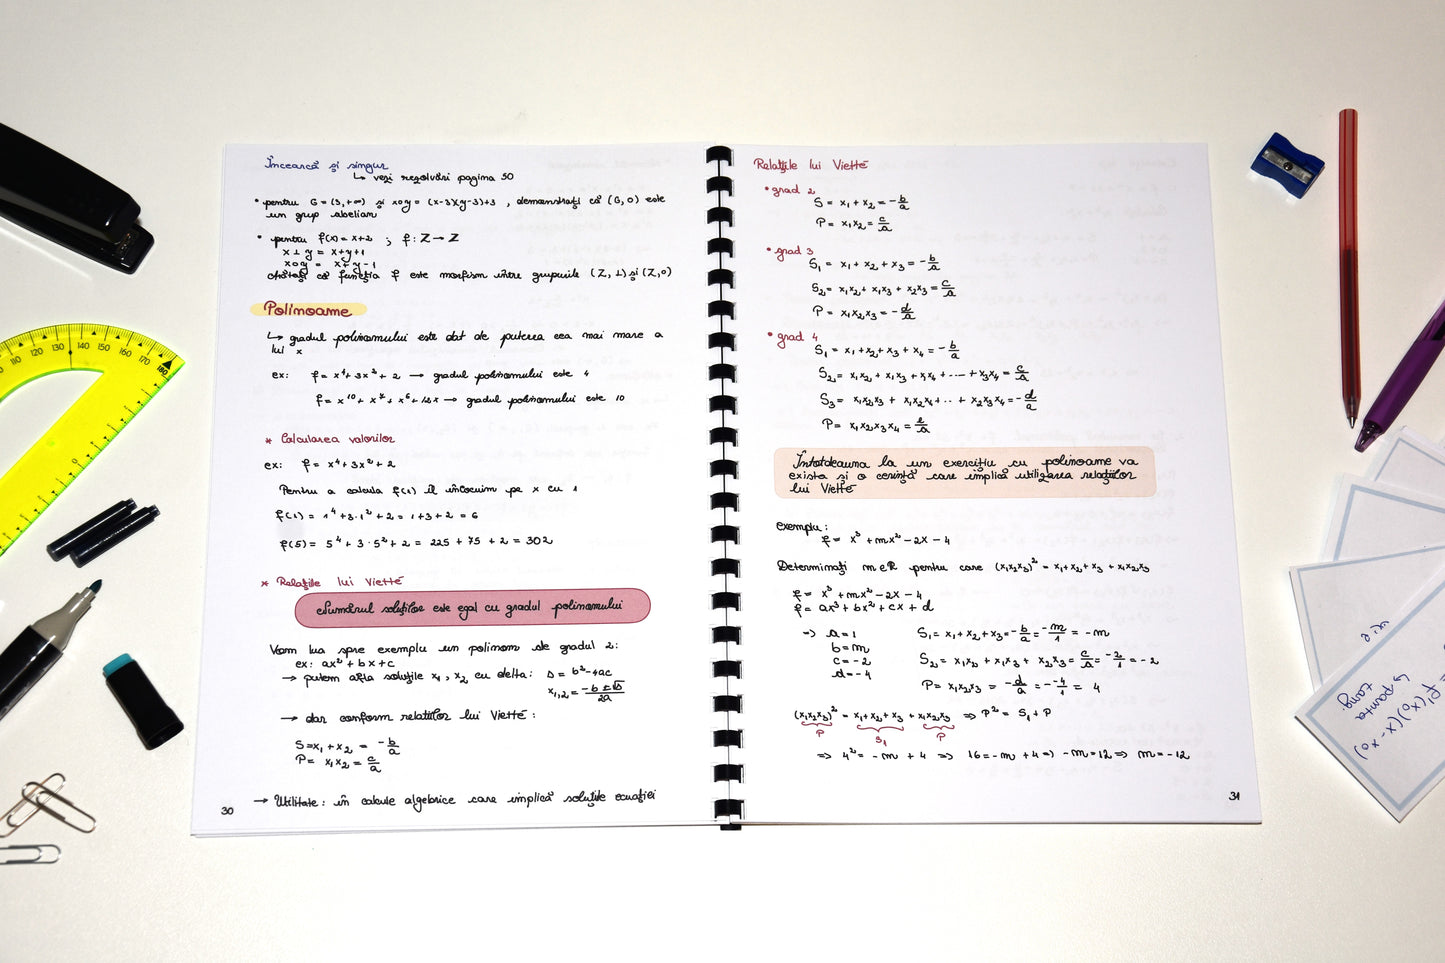 Încearcă și singur
↳ vezi rezolvări pagina 50
• pentru G = (3, +∞) și x∘y = (x-3)(y-3)+3 , demonstrați că (G,∘) este
un grup abelian
• pentru f(x) = x+2 ; f: Z → Z
x⊥y = x+y+1
x∘y = x+y-1
arătați că funcția f este morfism între grupurile (Z,⊥) și (Z,∘)
Polinoame
↳ gradul polinomului este dat de puterea cea mai mare a
lui x
ex: f = x⁴ + 3x³ + 2 → gradul polinomului este 4
f = x¹⁰ + x⁷ + x⁶ + 12x → gradul polinomului este 10
* Calcularea valorilor
ex: f = x⁴ + 3x² + 2
Pentru a calcula f(1) îl înlocuim pe x cu 1
f(1) = 1⁴ + 3·1² + 2 = 1+3+2 = 6
f(5) = 5⁴ + 3·5² + 2 = 225 + 75 + 2 = 302
* Relațiile lui Viette
Numărul soluțiilor este egal cu gradul polinomului
Vom lua spre exemplu un polinom de gradul 2:
ex: ax² + bx + c
→ putem afla soluțiile x₁, x₂ cu delta: Δ = b² - 4ac
x₁,₂ = (-b ± √Δ)/2a
→ dar conform relațiilor lui Viette:
S = x₁ + x₂ = -b/a
P = x₁x₂ = c/a
→ Utilitate: în calcule algebrice care implică soluțiile ecuației
30
Relațiile lui Viette
• grad 2
S = x₁ + x₂ = -b/a
P = x₁x₂ = c/a
• grad 3
S₁ = x₁ + x₂ + x₃ = -b/a
S₂ = x₁x₂ + x₁x₃ + x₂x₃ = c/a
P = x₁x₂x₃ = -d/a
• grad 4
S₁ = x₁ + x₂ + x₃ + x₄ = -b/a
S₂ = x₁x₂ + x₁x₃ + x₁x₄ + .... + x₃x₄ = c/a
S₃ = x₁x₂x₃ + x₁x₂x₄ + .. + x₂x₃x₄ = -d/a
P = x₁x₂x₃x₄ = e/a
Întotdeauna la un exercițiu cu polinoame va
exista și o cerință care implică utilizarea relațiilor
lui Viette
exemplu:
f = x³ + mx² - 2x - 4
Determinați m∈R pentru care (x₁x₂x₃)² = x₁+x₂+x₃ + x₁x₂x₃
f = x³ + mx² - 2x - 4
f = ax³ + bx² + cx + d
⇒ a = 1
b = m
c = -2
d = -4
S₁ = x₁ + x₂ + x₃ = -b/a = -m/1 = -m
S₂ = x₁x₂ + x₁x₃ + x₂x₃ = c/a = -2/1 = -2
P = x₁x₂x₃ = -d/a = --4/1 = 4
(x₁x₂x₃)² = x₁+x₂+x₃ + x₁x₂x₃ ⇒ P² = S₁ + P
P S₁ P
⇒ 4² = -m + 4 ⇒ 16 = -m + 4 ⇒ -m = 12 ⇒ m = -12
31
= f'(x₀)(x - x₀)
↳ panta
tang.